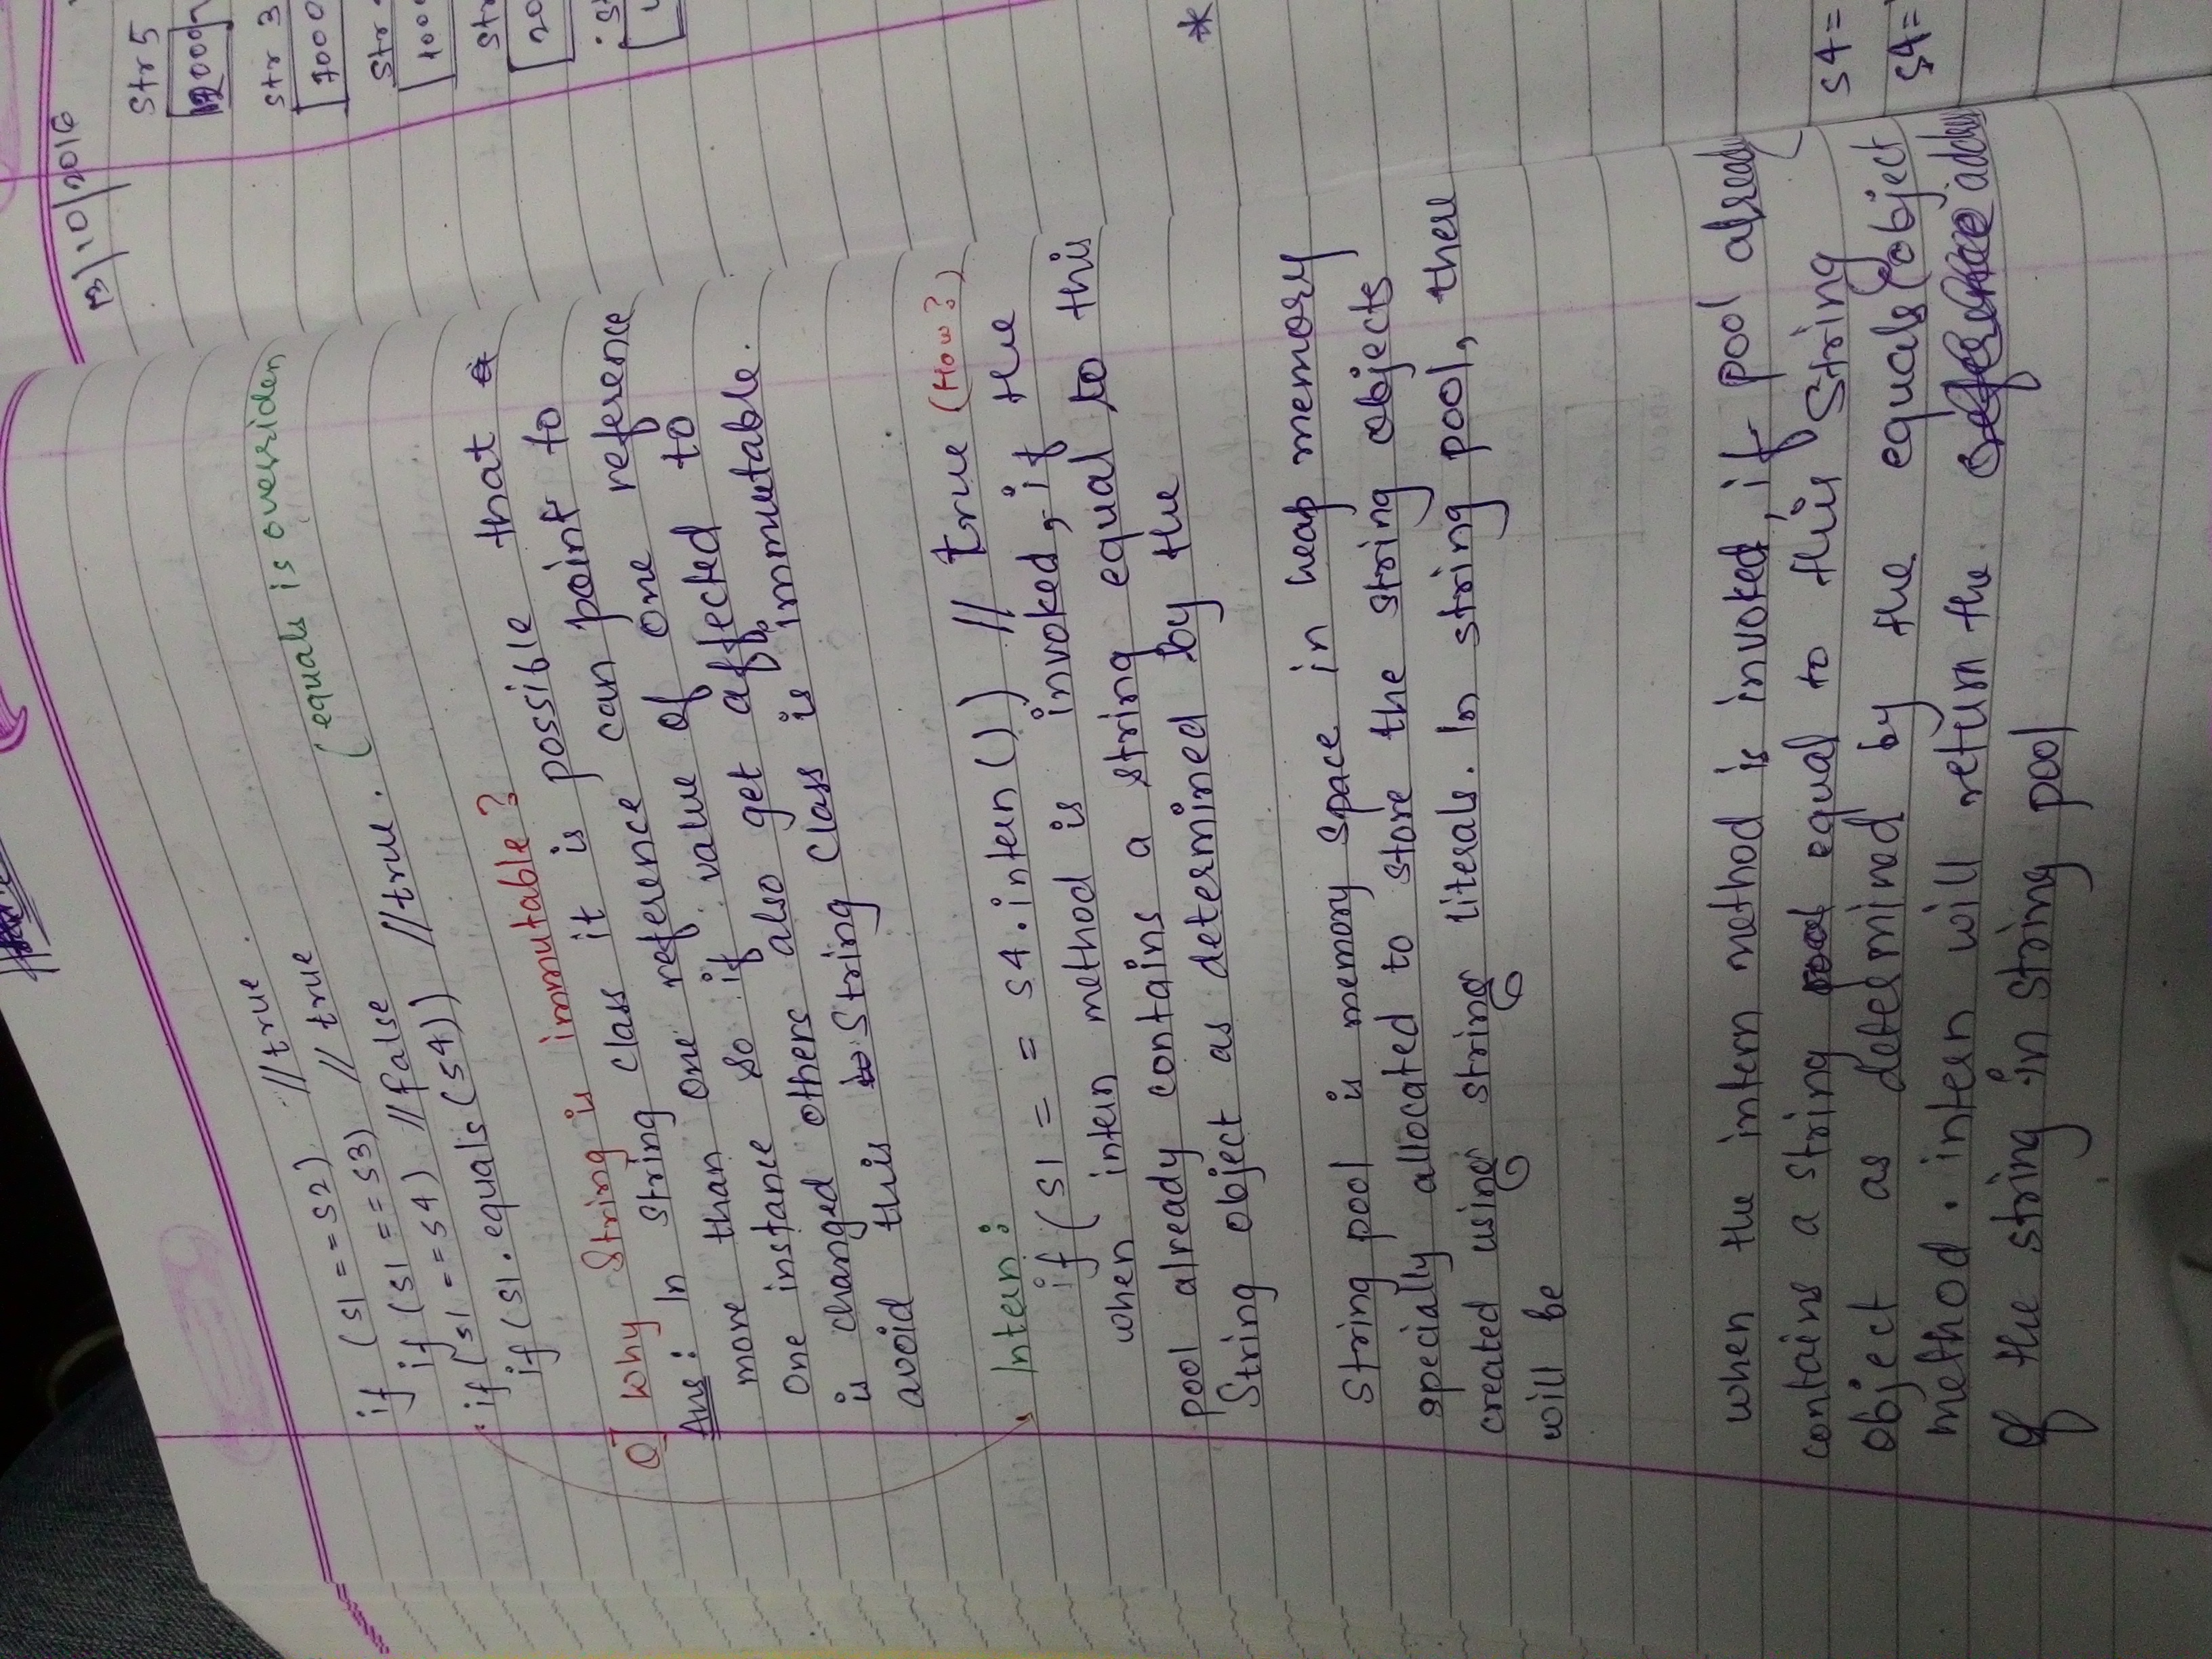 if (s1 == s2) //true.
if (s1 == s3) // true
if (s1 == s4) //false
if (s1.equals(s4)) //true. (equals is overriden
Q] Why String is immutable?
Ans: In String class it is possible that a
more than one reference can point to
One instance so if value of one reference
is changed others also get affected to
avoid this so String Class is immutable.
Intern:
if (s1 == s4.intern()) // true (How?)
when intern method is invoked, if the
pool already contains a string equal to this
String object as determined by the
String pool is memory space in heap memory
specially allocated to store the string objects
created using string literals. In string pool, there
will be
when the intern method is invoked, if pool already
contains a string pool equal to this String
object as determined by the equals(object
method. intern will return the reference address
of the string in string pool
13/10/2016
Str 5
Str 3
1000
Str
100
Str
20
*
s4=
s4=